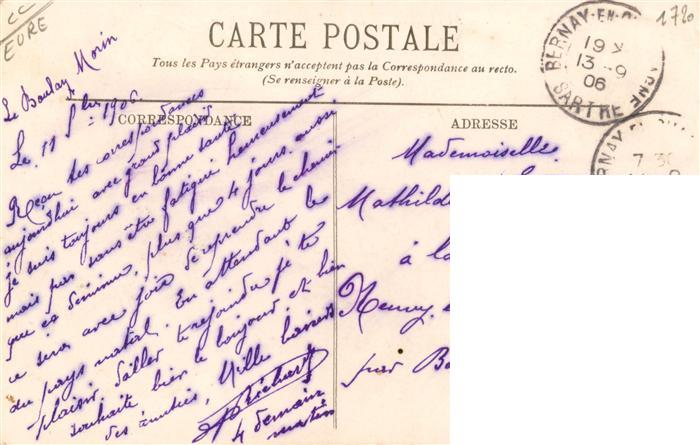 CC
EURE
1720
CARTE POSTALE
Tous les Pays étrangers n'acceptent pas la Correspondance au recto.
(Se renseigner à la Poste).
BERNAY-EN-C
19
13-9
06
SARTHE
CORRESPONDANCE
ADRESSE
Le Boulay Morin
Le 11 7bre 1906
Reçu tes correspondances
aujourd'hui avec grand plaisir
je suis toujours en bonne santé
mais pas sans être fatigué heureusement
que ça diminue, plus que 4 jours aussi
ce sera avec joie de reprendre le chemin
du pays natal. En attendant le
plaisir d'aller te rejoindre je te
souhaite bien le bonjour et bien
des amitiés, Mille baisers
4 demain
matin
Mademoiselle
Mathild
à la
par B
7 30